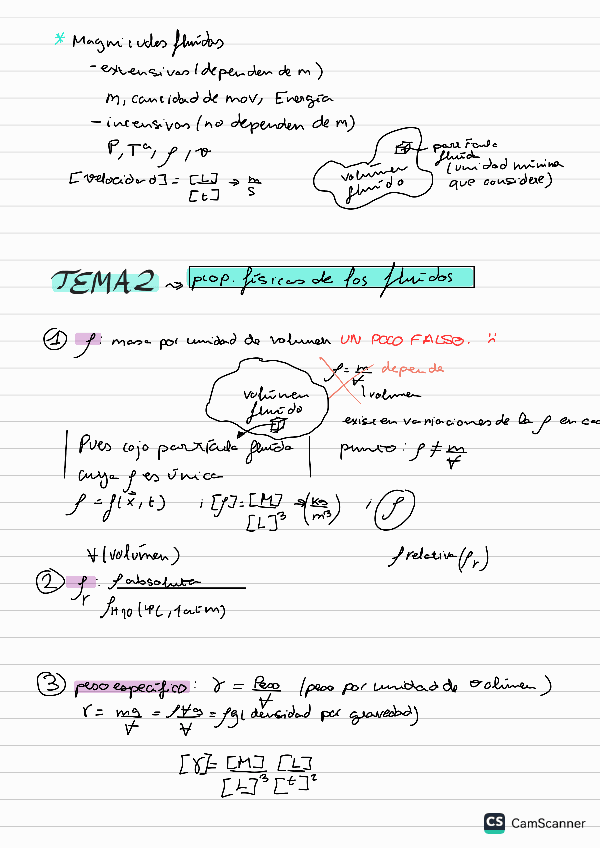 * Magnitudes fluidas
- extensivas (dependen de m)
m, cantidad de mov, Energía
- intensivas (no dependen de m)
P, Tª, ρ, v
[velocidad] = [L]/[t] → m/s
volumen fluido
partícula fluida (unidad mínima que considere)
TEMA 2 → prop. físicas de los fluidos
① ρ: masa por unidad de volumen UN POCO FALSO. :(
volumen fluido
ρ = m/∀ depende
↑ volumen
existen variaciones de la ρ en cada
punto: ρ ≠ m/∀
Pues cojo partícula fluida
cuya ρ es única
ρ = f(x⃗, t) ; [ρ] = [M]/[L]³ → (kg/m³) ; ρ
∀ (volumen)
ρ relativa (ρr)
② ρr: ρ absoluta / ρH2O (4ºC, 1 atm)
③ peso específico: γ = Peso/∀ (peso por unidad de volumen)
γ = mg/∀ = ρ∀g/∀ = ρg (densidad por gravedad)
[γ] = [M]/[L]³ [L]/[t]²
CS CamScanner